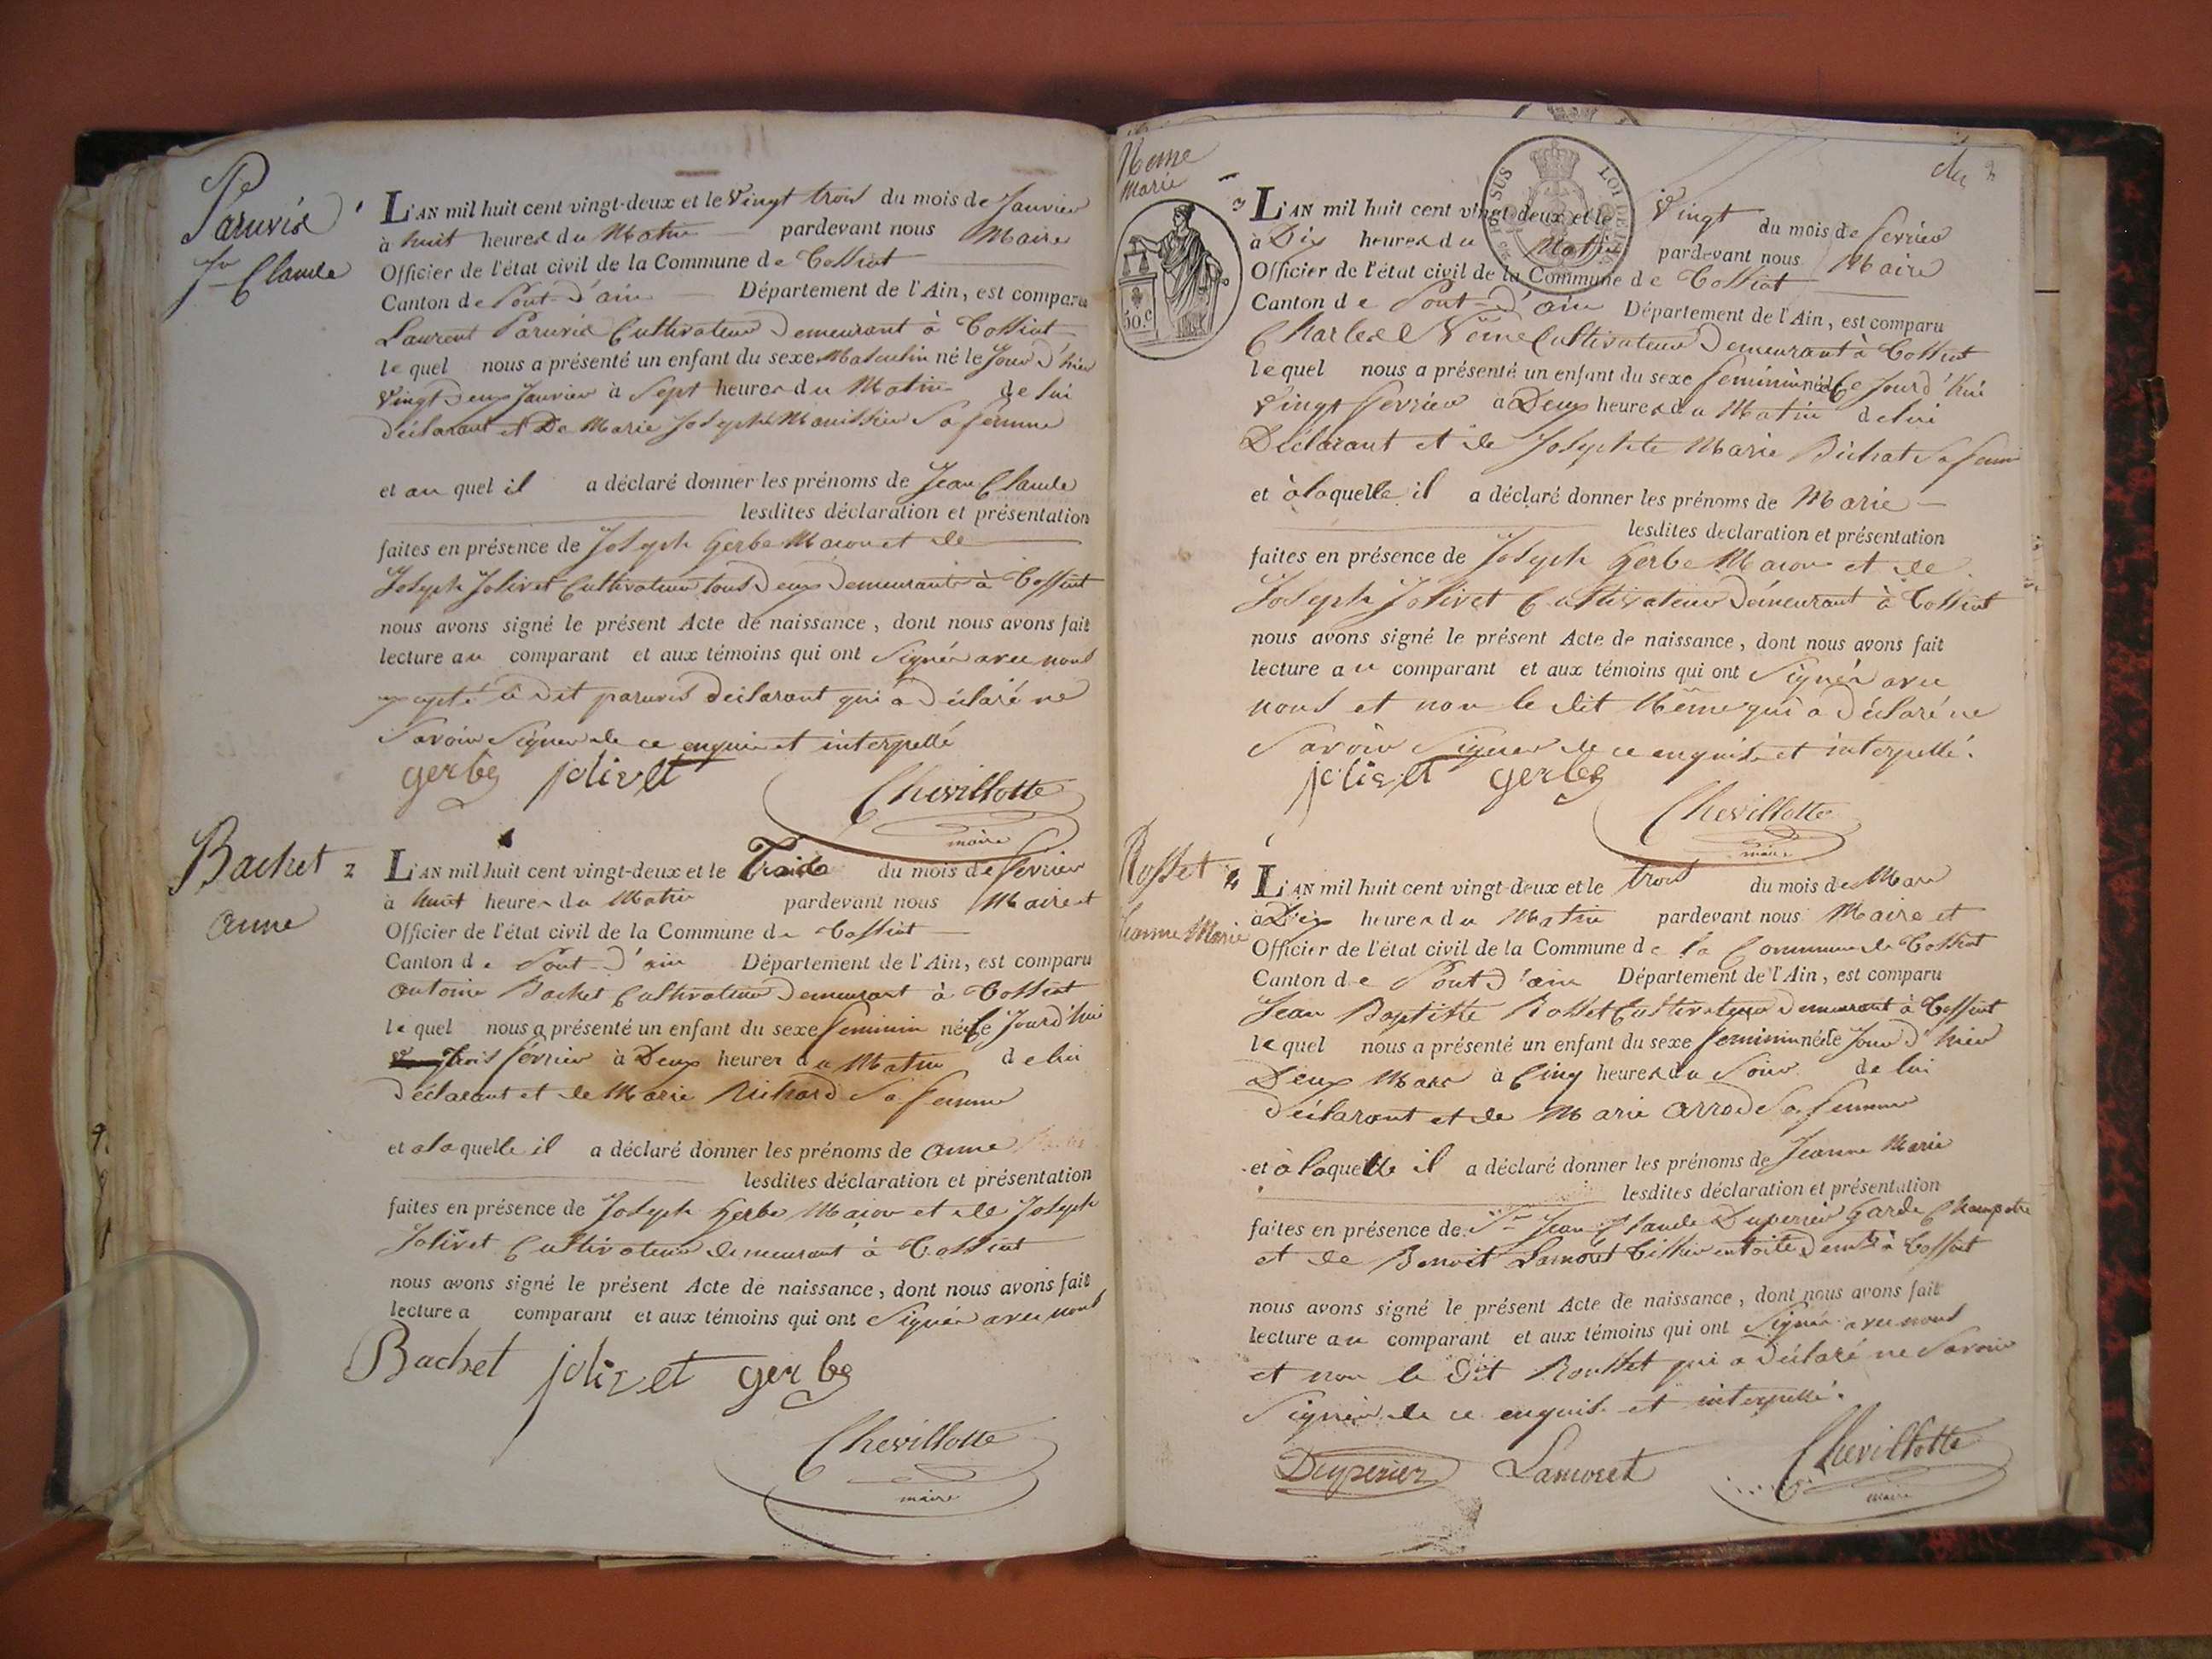 Paruvis
Jn Claude
1
L'AN mil huit cent vingt-deux et le Vingt trois du mois de Janvier
à huit heures du Matin pardevant nous Maire
Officier de l'état civil de la Commune de Tossiat
Canton de Pont-d'ain Département de l'Ain, est comparu
Laurent Paruvis Cultivateur Demeurant à Tossiat
lequel nous a présenté un enfant du sexe Masculin né le Jour d'hier
Vingt Deux Janvier à Sept heures du Matin de lui
déclarant et De Marie Josephe Manissier Sa femme
et au quel il a déclaré donner les prénoms de Jean Claude
lesdites déclaration et présentation
faites en présence de Joseph Gerbe Macon et de
Joseph Jolivet Cultivateur tous Deux Demeurants à Tossiat
nous avons signé le présent Acte de naissance, dont nous avons fait
lecture au comparant et aux témoins qui ont Signés avec nous
excepté le Dit paruvis déclarant qui a Déclaré ne
Savoir Signer de ce enquis et interpellé
gerbe jolivet
Chevillotte
maire
Bachet
anne
2
L'AN mil huit cent vingt-deux et le Trois du mois de fevrier
à huit heures du Matin pardevant nous Maire et
Officier de l'état civil de la Commune de Tossiat
Canton de Pont-D'ain Département de l'Ain, est comparu
antoine Bachet Cultivateur Demeurant à Tossiat
le quel nous a présenté un enfant du sexe feminin née ce Jourd'hui
Trois février à Deux heures du Matin de lui
déclarant et de Marie Richard Sa femme
et a laquelle il a déclaré donner les prénoms de anne
lesdites déclaration et présentation
faites en présence de Joseph Gerbe Maçon et de Joseph
Jolivet Cultivateur demeurant à Tossiat
nous avons signé le présent Acte de naissance, dont nous avons fait
lecture a comparant et aux témoins qui ont Signés avec nous
Bachet jolivet gerbe
Chevillotte
maire
Neme
Marie
50.c
SUS
LOI DE 1816
3
L'AN mil huit cent vingt-deux et le Vingt du mois de fevrier
à Dix heures du Matin pardevant nous Maire
Officier de l'état civil de la Commune de Tossiat
Canton de Pont-D'ain Département de l'Ain, est comparu
Charles Nême Cultivateur Demeurant à Tossiat
lequel nous a présenté un enfant du sexe feminin née Ce Jourd'hui
Vingt fevrier à Deux heures du Matin de lui
Déclarant et de Josephte Marie Bichat Sa femme
et à laquelle il a déclaré donner les prénoms de Marie
lesdites declaration et présentation
faites en présence de Joseph Gerbe Macon et de
Joseph Jolivet Cultivateur Demeurant à Tossiat
nous avons signé le présent Acte de naissance, dont nous avons fait
lecture au comparant et aux témoins qui ont Signés avec
nous et non le dit Nême qui a Déclaré ne
Savoir Signer de ce enquis et interpellé.
jolivet gerbe
Chevillotte
maire
Rosset
Jeanne Marie
4
L'AN mil huit cent vingt-deux et le trois du mois de Mars
à Dix heures du Matin pardevant nous Maire et
Officier de l'état civil de la Commune de la Commune de Tossiat
Canton de Pont D'ain Département de l'Ain, est comparu
Jean Baptiste Rosset Cultivateur Demeurant à Tossiat
lequel nous a présenté un enfant du sexe feminin née le Jour D'hier
Deux Mars à Cinq heures du Soir de lui
déclarant et de Marie Arrod Sa femme
et à laquelle il a déclaré donner les prénoms de Jeanne Marie
lesdites déclaration et présentation
faites en présence de Sr Jean Claude Duperier Garde Champetre
et de Benoit Lamoret Tissier en toile Demt à Tossiat
nous avons signé le présent Acte de naissance, dont nous avons fait
lecture au comparant et aux témoins qui ont Signés avec nous
et non le Dit Rousset qui a Déclaré ne Savoir
Signer de ce enquis et interpellé.
Duperier Lamoret
Chevillotte
maire